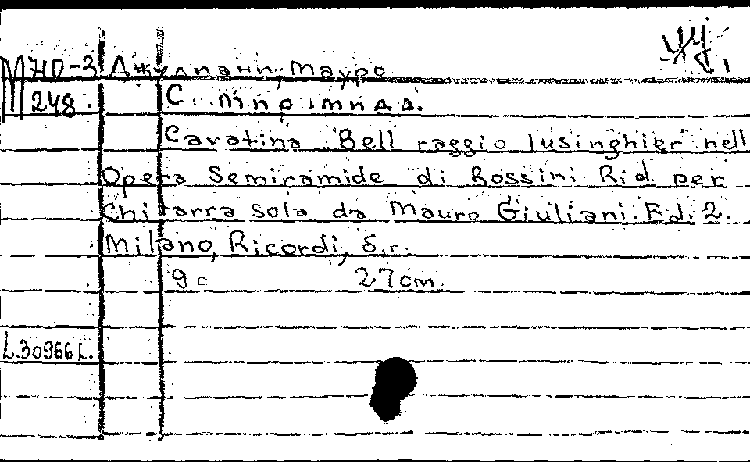 МЗО-3 Джулиани, Мауро
248.
Cavatina "Bell raggio lusinghier" nell
Opera Semiramide di Rossini. Rid. per
Chitarra sola da Mauro Giuliani. Ed. 2.
Milano, Ricordi, б.г.
9 с 27cm.
L.30966L.